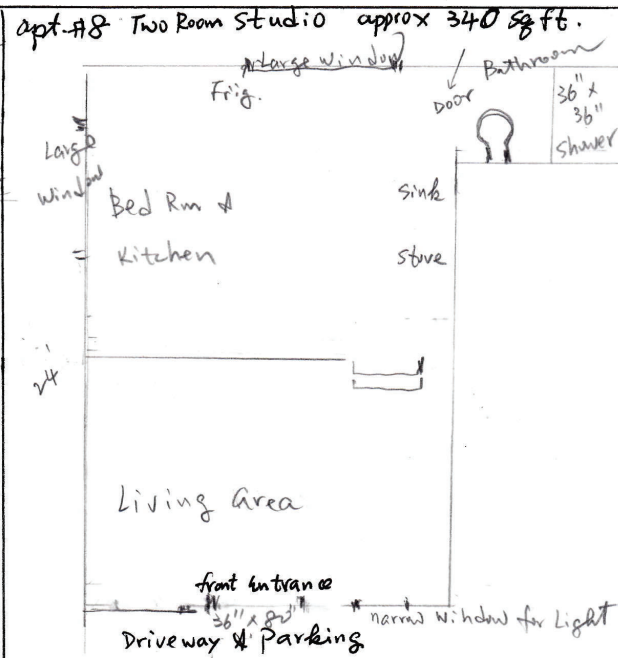 apt #8 Two Room Studio approx 340 sq ft.
Large Window
Frig.
Door
Bathroom
36" x
36"
shower
Large
Window
Bed Rm &
Kitchen
sink
stove
Living Area
front entrance
36" x 80"
narrow window for Light
Driveway & Parking